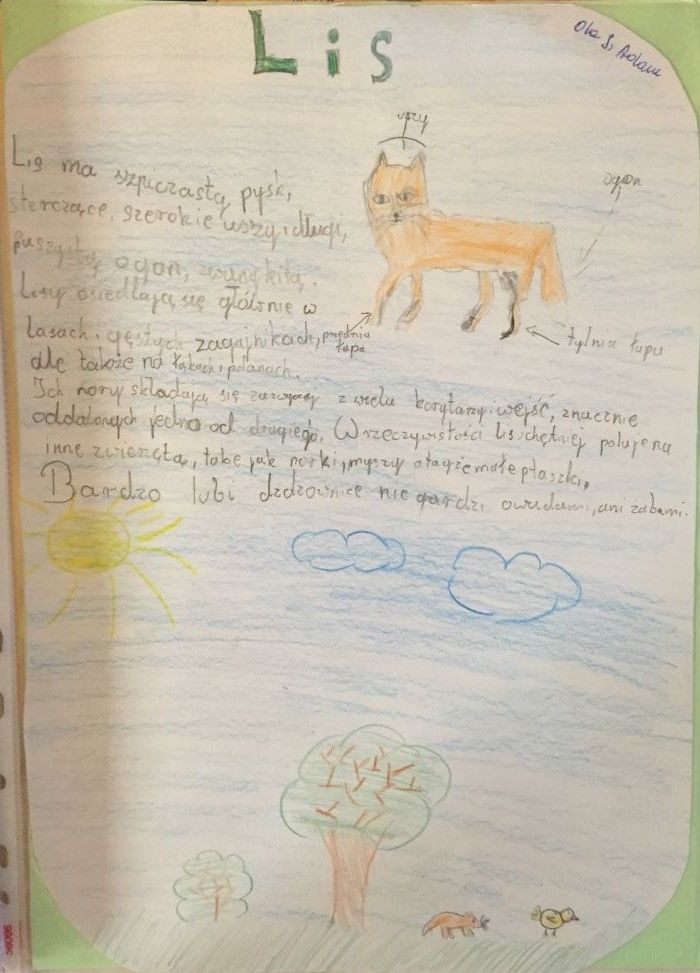 Lis
Ola S, Adam
uszy
ogon
Lis ma szpiczastą pysk,
sterczące, szerokie uszy i długi,
puszysty ogon, zwany kitą.
Lisy osiedlają się głównie w
lasach i gęstych zagajnikach,
przednia
łapa
tylnia łapa
ale także na łąkach i polanach.
Ich nory składają się zazwyczaj z wielu korytarzy i wejść, znacznie
oddalonych jedno od drugiego. W rzeczywistości lis chętniej poluje na
inne zwierzęta, take jak norki, myszy a także małe ptaszki.
Bardzo lubi dżdżownice nie gardzi owadami, ani żabami.